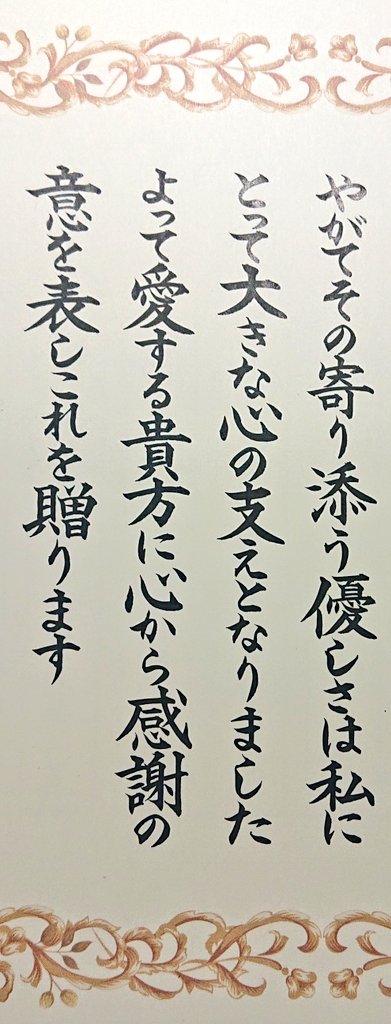 やがてその寄り添う優しさは私に
とって大きな心の支えとなりました
よって愛する貴方に心から感謝の
意を表しこれを贈ります